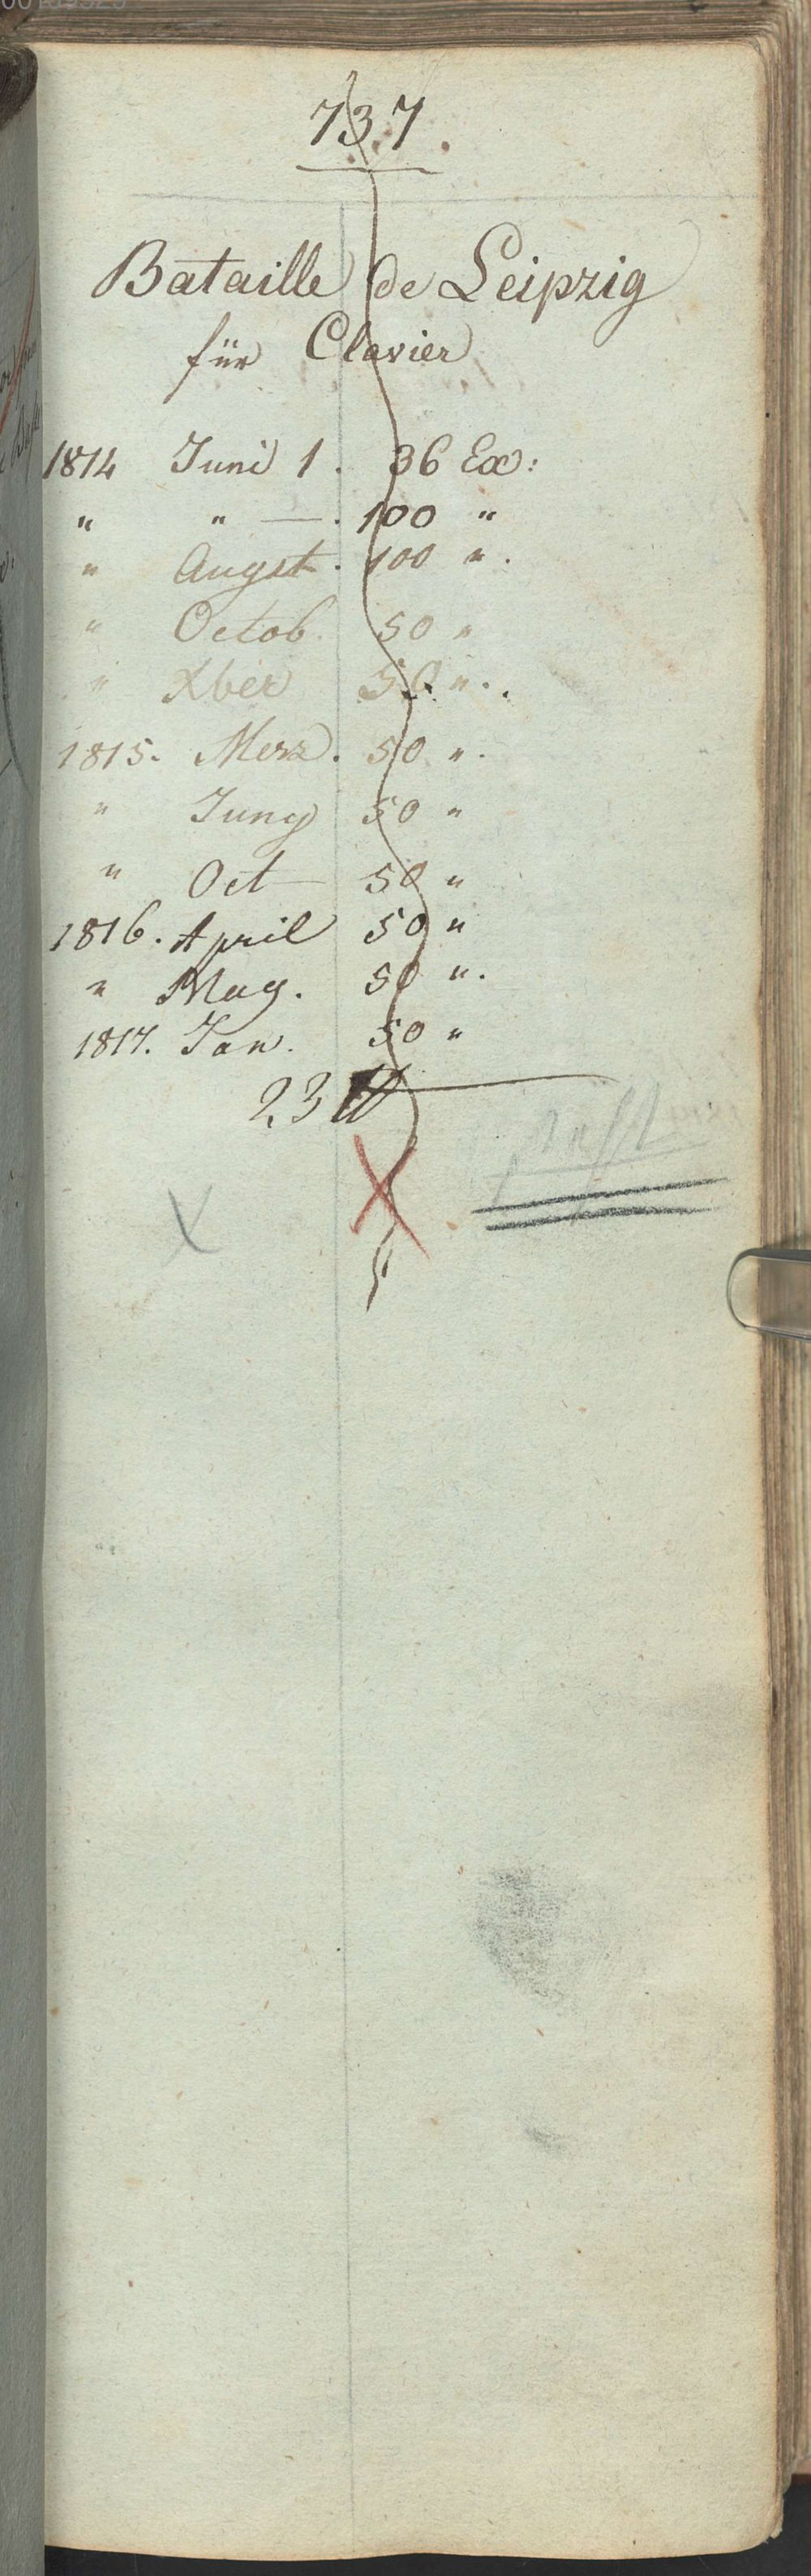 737.
Bataille de Leipzig
für Clavier
1814 Juni 1. 36 Ex:
" " — . 100 "
" Augst. 100 ".
" Octob. 50 "
" Xber 50 ".
1815. Merz. 50 ".
" Juny 50 "
" Oct — 50 "
1816. April 50 "
" May. 50 ".
1817. Jan. 50 "
23 ℔